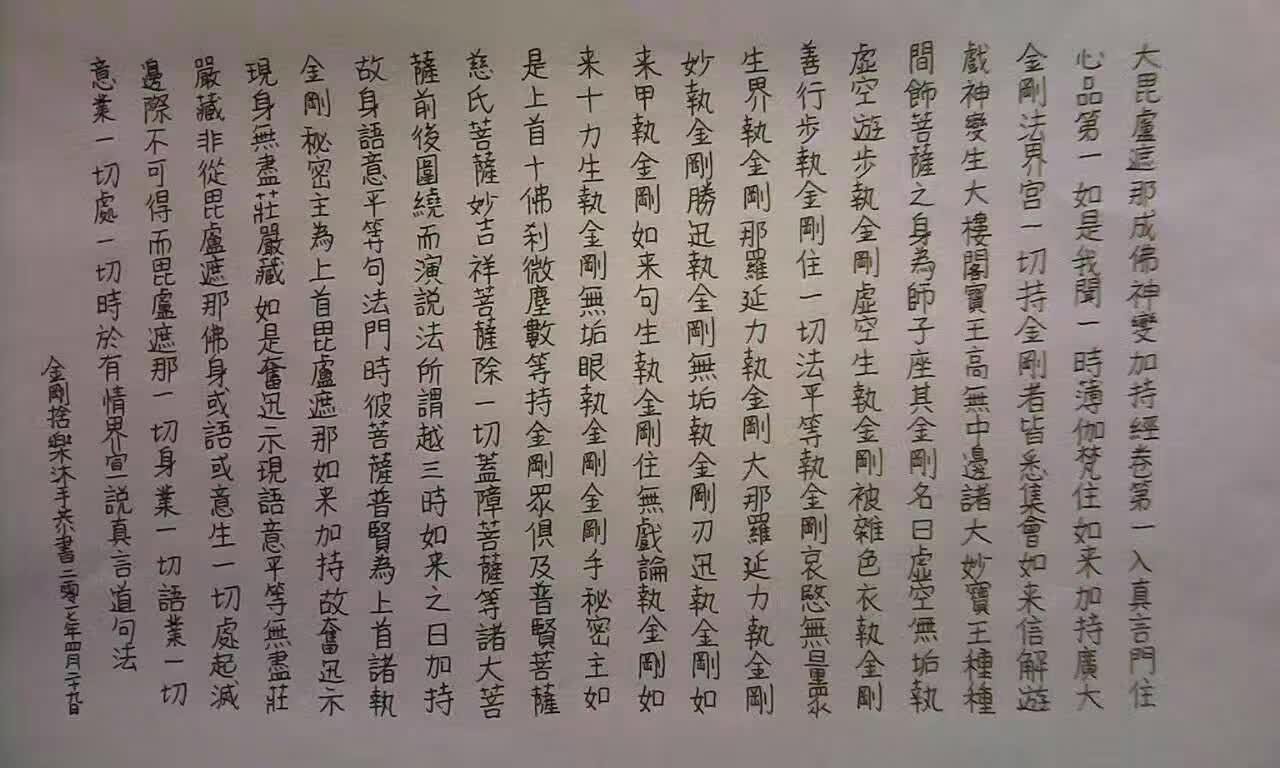 大毘盧遮那成佛神變加持經卷第一入真言門住
心品第一如是我聞一時薄伽梵住如来加持廣大
金剛法界宫一切持金剛者皆悉集會如来信解遊
戲神變生大樓閣寶王高無中邊諸大妙寶王種種
間飾菩薩之身為師子座其金剛名曰虛空無垢執
虛空遊步執金剛虛空生執金剛被雜色衣執金剛
善行步執金剛住一切法平等執金剛哀愍無量眾
生界執金剛那羅延力執金剛大那羅延力執金剛
妙執金剛勝迅執金剛無垢執金剛刃迅執金剛如
来甲執金剛如来句生執金剛住無戲論執金剛如
来十力生執金剛無垢眼執金剛金剛手秘密主如
是上首十佛刹微塵數等持金剛眾俱及普賢菩薩
慈氏菩薩妙吉祥菩薩除一切蓋障菩薩等諸大菩
薩前後圍繞而演説法所謂越三時如来之日加持
故身語意平等句法門時彼菩薩普賢為上首諸執
金剛秘密主為上首毘盧遮那如来加持故奮迅示
現身無盡莊嚴藏如是奮迅示現語意平等無盡莊
嚴藏非從毘盧遮那佛身或語或意生一切處起滅
邊際不可得而毘盧遮那一切身業一切語業一切
意業一切處一切時於有情界宣説真言道句法
金剛捨樂沐手恭書二零一七年四月二十九日